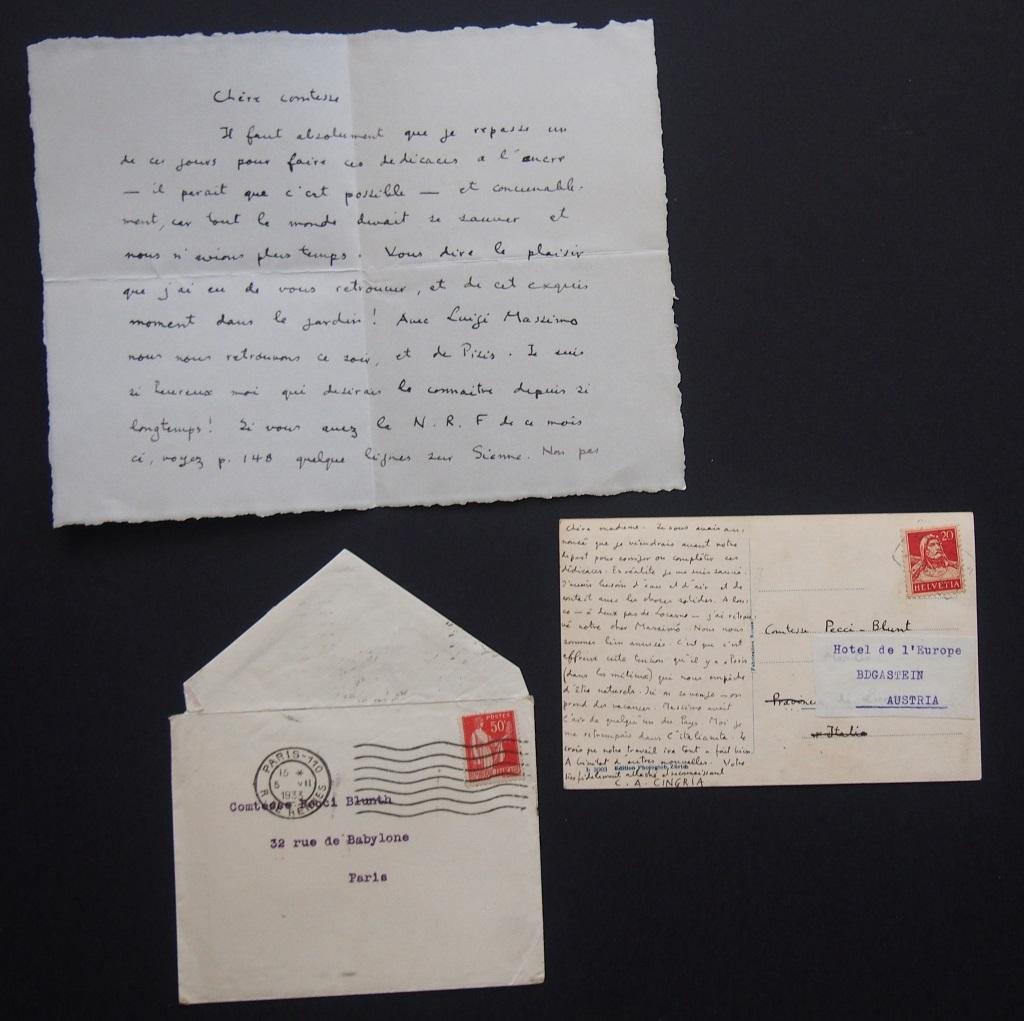 Chère comtesse
Il faut absolument que je repasse un
de ces jours pour faire ces dedicaces a l'encre
— il parait que c'est possible — et convenable-
ment, car tout le monde devait se sauver et
nous n'avions plus temps. Vous dire le plaisir
que j'ai eu de vous retrouver, et de cet exquis
moment dans le jardin! Avec Luigi Massimo
nous nous retrouvons ce soir, et de Pisis. Je suis
si heureux moi qui desirais le connaitre depuis si
longtemps! Si vous avez la N.R.F de ce mois
ci, voyez p. 148 quelque lignes sur Sienne. Non pas
Chère madame. Je vous avais an-
noncé que je viendrais avant notre
depart pour corriger ou complèter ces
dédicaces. En réalité je me suis sauvé.
J'avais besoin d'eau et d'air et de
contact avec les choses solides. A
co — à deux pas de Locarno — j'ai retrou-
vé notre cher Massimo. Nous nous
sommes bien amusés. C'est que c'est
affreux cette tension qu'il y a a Paris
(dans les métiers) qui nous empêche
d'être naturels. Ici on se venge — on
prend des vacances. Massimo avait
l'air de quelqu'un du Pays. Moi je
me retrempais dans l'italianità. Je
crois que notre travail ira tout a fait bien.
A bientôt d'autres nouvelles. Votre
bien fidèlement attaché et reconnaissant
C. A. CINGRIA
b 3003 Edition Photoglob, Zürich
20
HELVETIA
Comtesse Pecci-Blunt
Hotel de l'Europe
BDGASTEIN
AUSTRIA
Italia
POSTES
50c
PARIS-110
15 *
5 VII
1933
R. DE RENNES
Comtesse Pecci Blunth
32 rue de Babylone
Paris